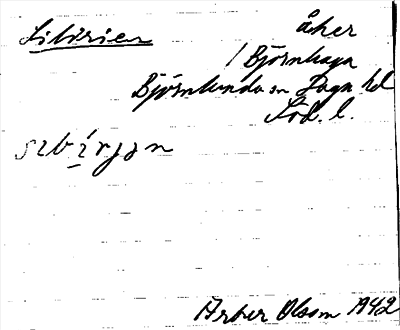 Sibirien
åker
i Björnhaga
Björnlunda sn Daga hd
Söd. l.
sɩbí̱rjən
Arher Olsson 1942